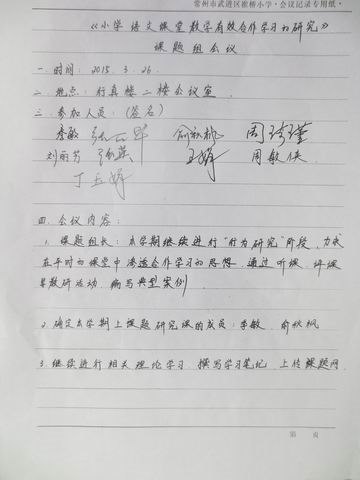 常州市武进区雪堰小学·会议记录专用纸·
《小学语文课堂教学有效合作学习的研究》
课题组会议
一.时间: 2015.3.26
二.地点: 行真楼二楼会议室.
三.参加人员:(签名)
李敏 俞秋枫
刘丽芳 王娟 周敏侠
丁玉娟
四.会议内容:
1.课题组长:本学期继续进行"行为研究"阶段,力求
在平时的课堂中渗透合作学习的思想,通过听课、评课
等教研活动,编写典型案例.
2.确定本学期上课题研究课的成员:李敏、俞秋枫
3.继续进行相关理论学习,撰写学习笔记,上传课题网.
第 页